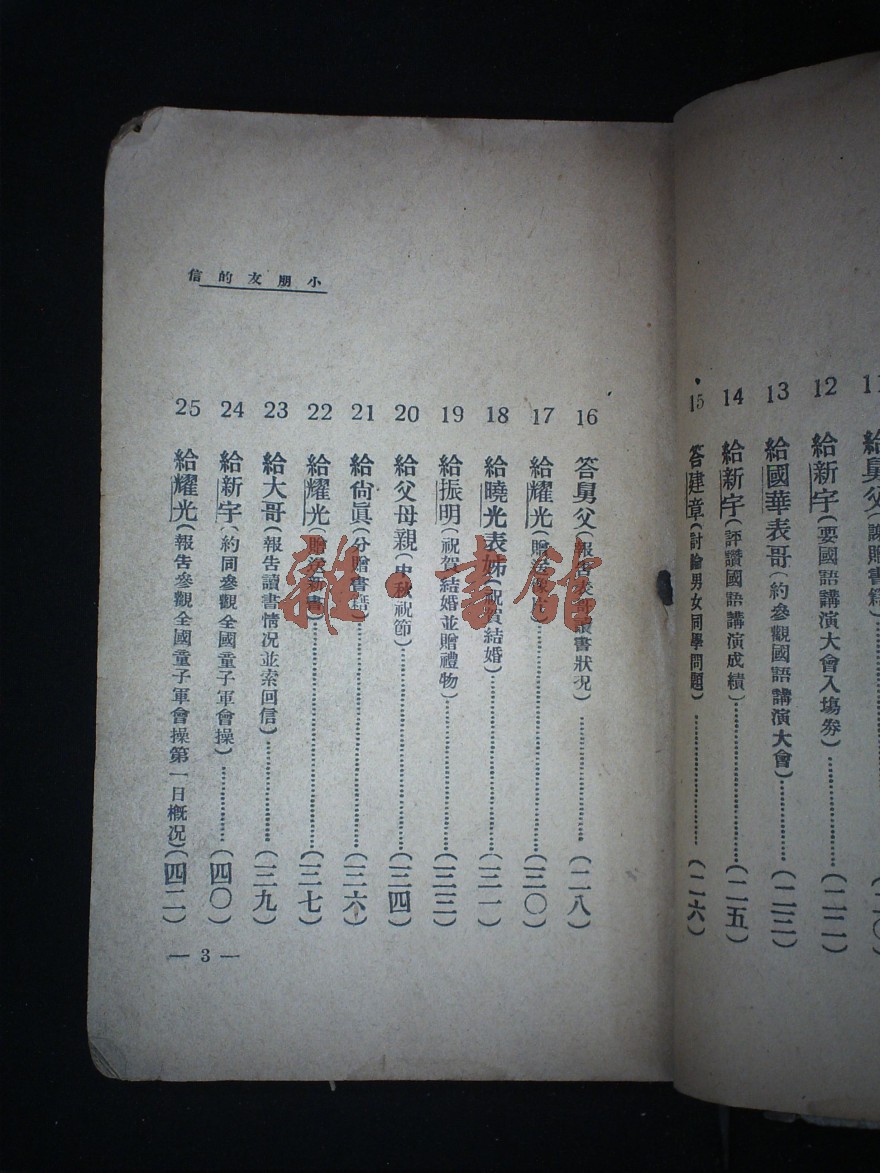 11 給舅父(謝贈書籍)……(二〇)
12 給新宇(要國語講演大會入塲券)……(二二)
13 給國華表哥(約參觀國語講演大會)……(二三)
14 給新宇(評讚國語講演成績)……(二五)
15 答建章(討論男女同學問題)……(二六)
小朋友的信
16 答舅父(報告表哥讀書狀況)……(二八)
17 給耀光(贈送像片)……(三〇)
18 給曉光表姊(祝賀結婚)……(三一)
19 給振明(祝賀結婚並贈禮物)……(三三)
20 給父母親(中秋祝節)……(三四)
21 給尙眞(分贈書籍)……(三六)
22 給耀光(贈送新書)……(三七)
23 給大哥(報告讀書情况並索回信)……(三九)
24 給新宇(約同參觀全國童子軍會操)……(四〇)
25 給耀光(報告參觀全國童子軍會操第一日概况)(四二)
— 3 —
雜·書館